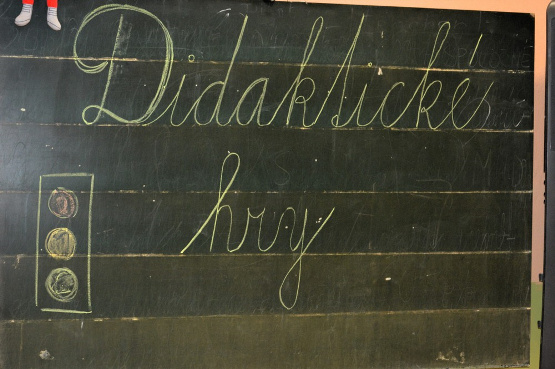 Didaktické
hry